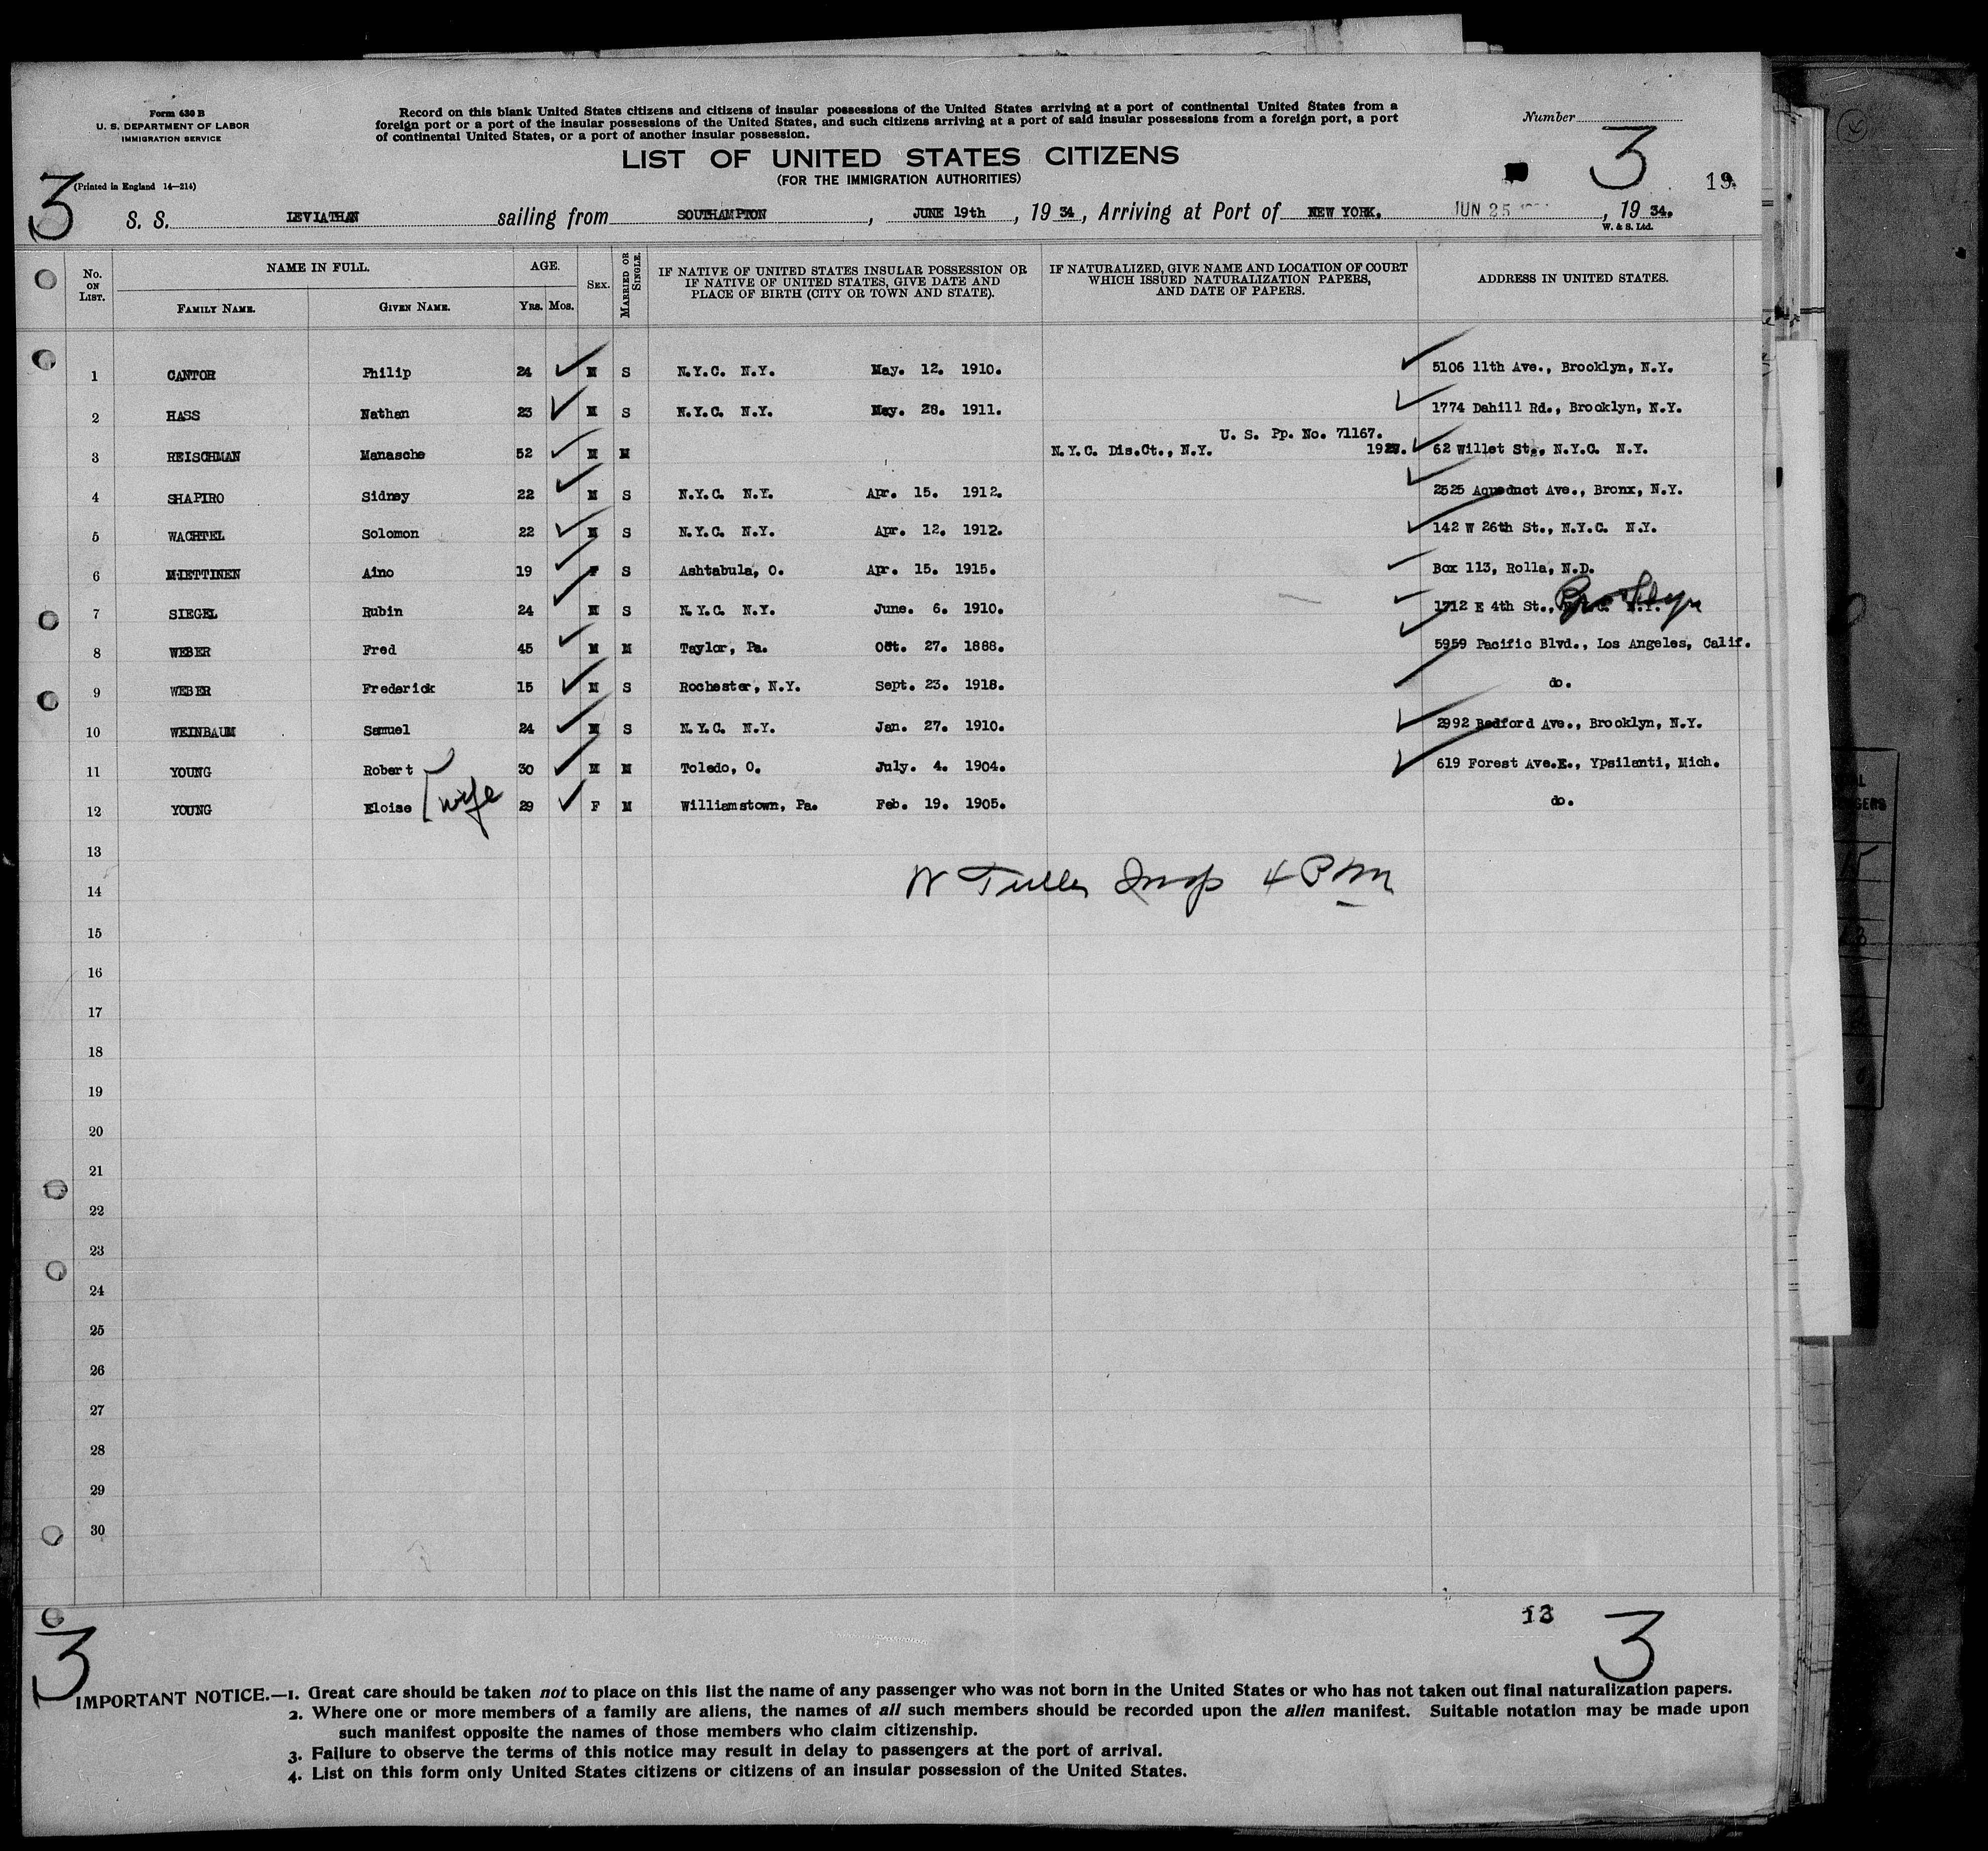 Form 630 B
U. S. DEPARTMENT OF LABOR
IMMIGRATION SERVICE
(Printed in England 14—214)
Record on this blank United States citizens and citizens of insular possessions of the United States arriving at a port of continental United States from a
foreign port or a port of the insular possessions of the United States, and such citizens arriving at a port of said insular possessions from a foreign port, a port
of continental United States, or a port of another insular possession.
LIST OF UNITED STATES CITIZENS
(FOR THE IMMIGRATION AUTHORITIES)
Number
3
3
19
S. S. LEVIATHAN sailing from SOUTHAMPTON, JUNE 19th, 19 34, Arriving at Port of NEW YORK. JUN 25, 19 34.
W. & S. Ltd.
No. ON LIST.
NAME IN FULL.
FAMILY NAME.
GIVEN NAME.
AGE.
YRS. MOS.
SEX.
MARRIED OR SINGLE.
IF NATIVE OF UNITED STATES INSULAR POSSESSION OR
IF NATIVE OF UNITED STATES, GIVE DATE AND
PLACE OF BIRTH (CITY OR TOWN AND STATE).
IF NATURALIZED, GIVE NAME AND LOCATION OF COURT
WHICH ISSUED NATURALIZATION PAPERS,
AND DATE OF PAPERS.
ADDRESS IN UNITED STATES.
1 CANTOR Philip 24 M S N.Y.C. N.Y. May. 12. 1910. 5106 11th Ave., Brooklyn, N.Y.
2 HASS Nathan 23 M S N.Y.C. N.Y. May. 28. 1911. 1774 Dahill Rd., Brooklyn, N.Y.
U. S. Pp. No. 71167.
3 REISCHMAN Manasche 52 M M N.Y.C. Dis.Ct., N.Y. 62 Willet St., N.Y.C. N.Y.
4 SHAPIRO Sidney 22 M S N.Y.C. N.Y. Apr. 15. 1912. 2525 Aqueduct Ave., Bronx, N.Y.
5 WACHTEL Solomon 22 M S N.Y.C. N.Y. Apr. 12. 1912. 142 W 26th St., N.Y.C. N.Y.
6 MIETTINEN Aino 19 F S Ashtabula, O. Apr. 15. 1915. Box 113, Rolla, N.D.
7 SIEGEL Rubin 24 M S N.Y.C. N.Y. June. 6. 1910. 1712 E 4th St., Brooklyn
8 WEBER Fred 45 M M Taylor, Pa. Oct. 27. 1888. 5959 Pacific Blvd., Los Angeles, Calif.
9 WEBER Frederick 15 M S Rochester, N.Y. Sept. 23. 1918. do.
10 WEINBAUM Samuel 24 M S N.Y.C. N.Y. Jan. 27. 1910. 2992 Bedford Ave., Brooklyn, N.Y.
11 YOUNG Robert 30 M M Toledo, O. July. 4. 1904. 619 Forest Ave.E., Ypsilanti, Mich.
12 YOUNG Eloise wife 29 F M Williamstown, Pa. Feb. 19. 1905. do.
13
14 W Insp 4 PM
15
16
17
18
19
20
21
22
23
24
25
26
27
28
29
30
3
3
IMPORTANT NOTICE.—1. Great care should be taken not to place on this list the name of any passenger who was not born in the United States or who has not taken out final naturalization papers.
2. Where one or more members of a family are aliens, the names of all such members should be recorded upon the alien manifest. Suitable notation may be made upon
such manifest opposite the names of those members who claim citizenship.
3. Failure to observe the terms of this notice may result in delay to passengers at the port of arrival.
4. List on this form only United States citizens or citizens of an insular possession of the United States.